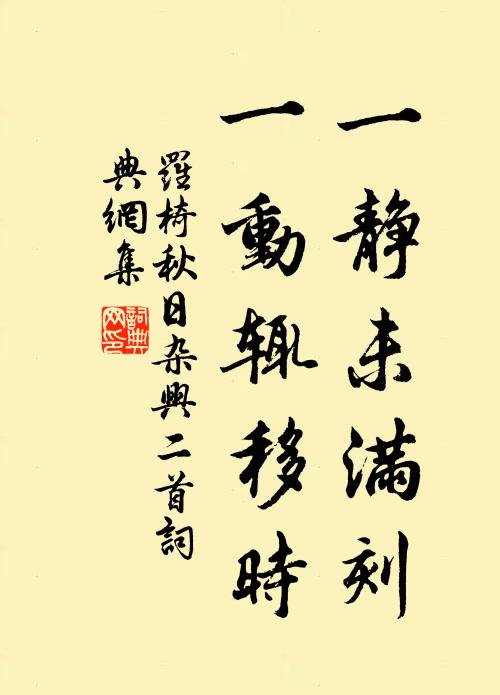 一靜未滿刻
一動輒移時
羅椅秋日杂興二首詞
典網集
詞典网印